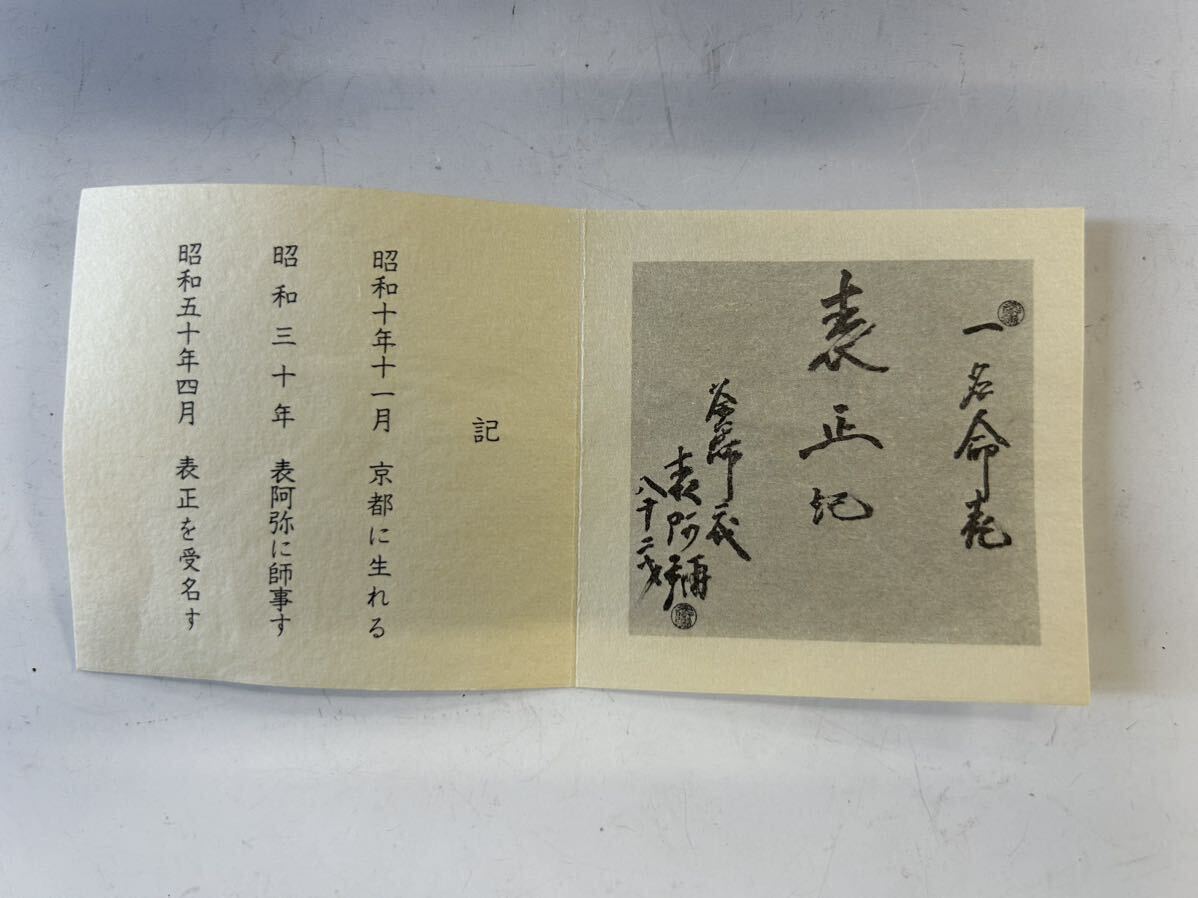 一名命表
表正記
釜師家
表阿彌
八十二才
記
昭和十年十一月 京都に生れる
昭和三十年 表阿弥に師事す
昭和五十年四月 表正を受名す